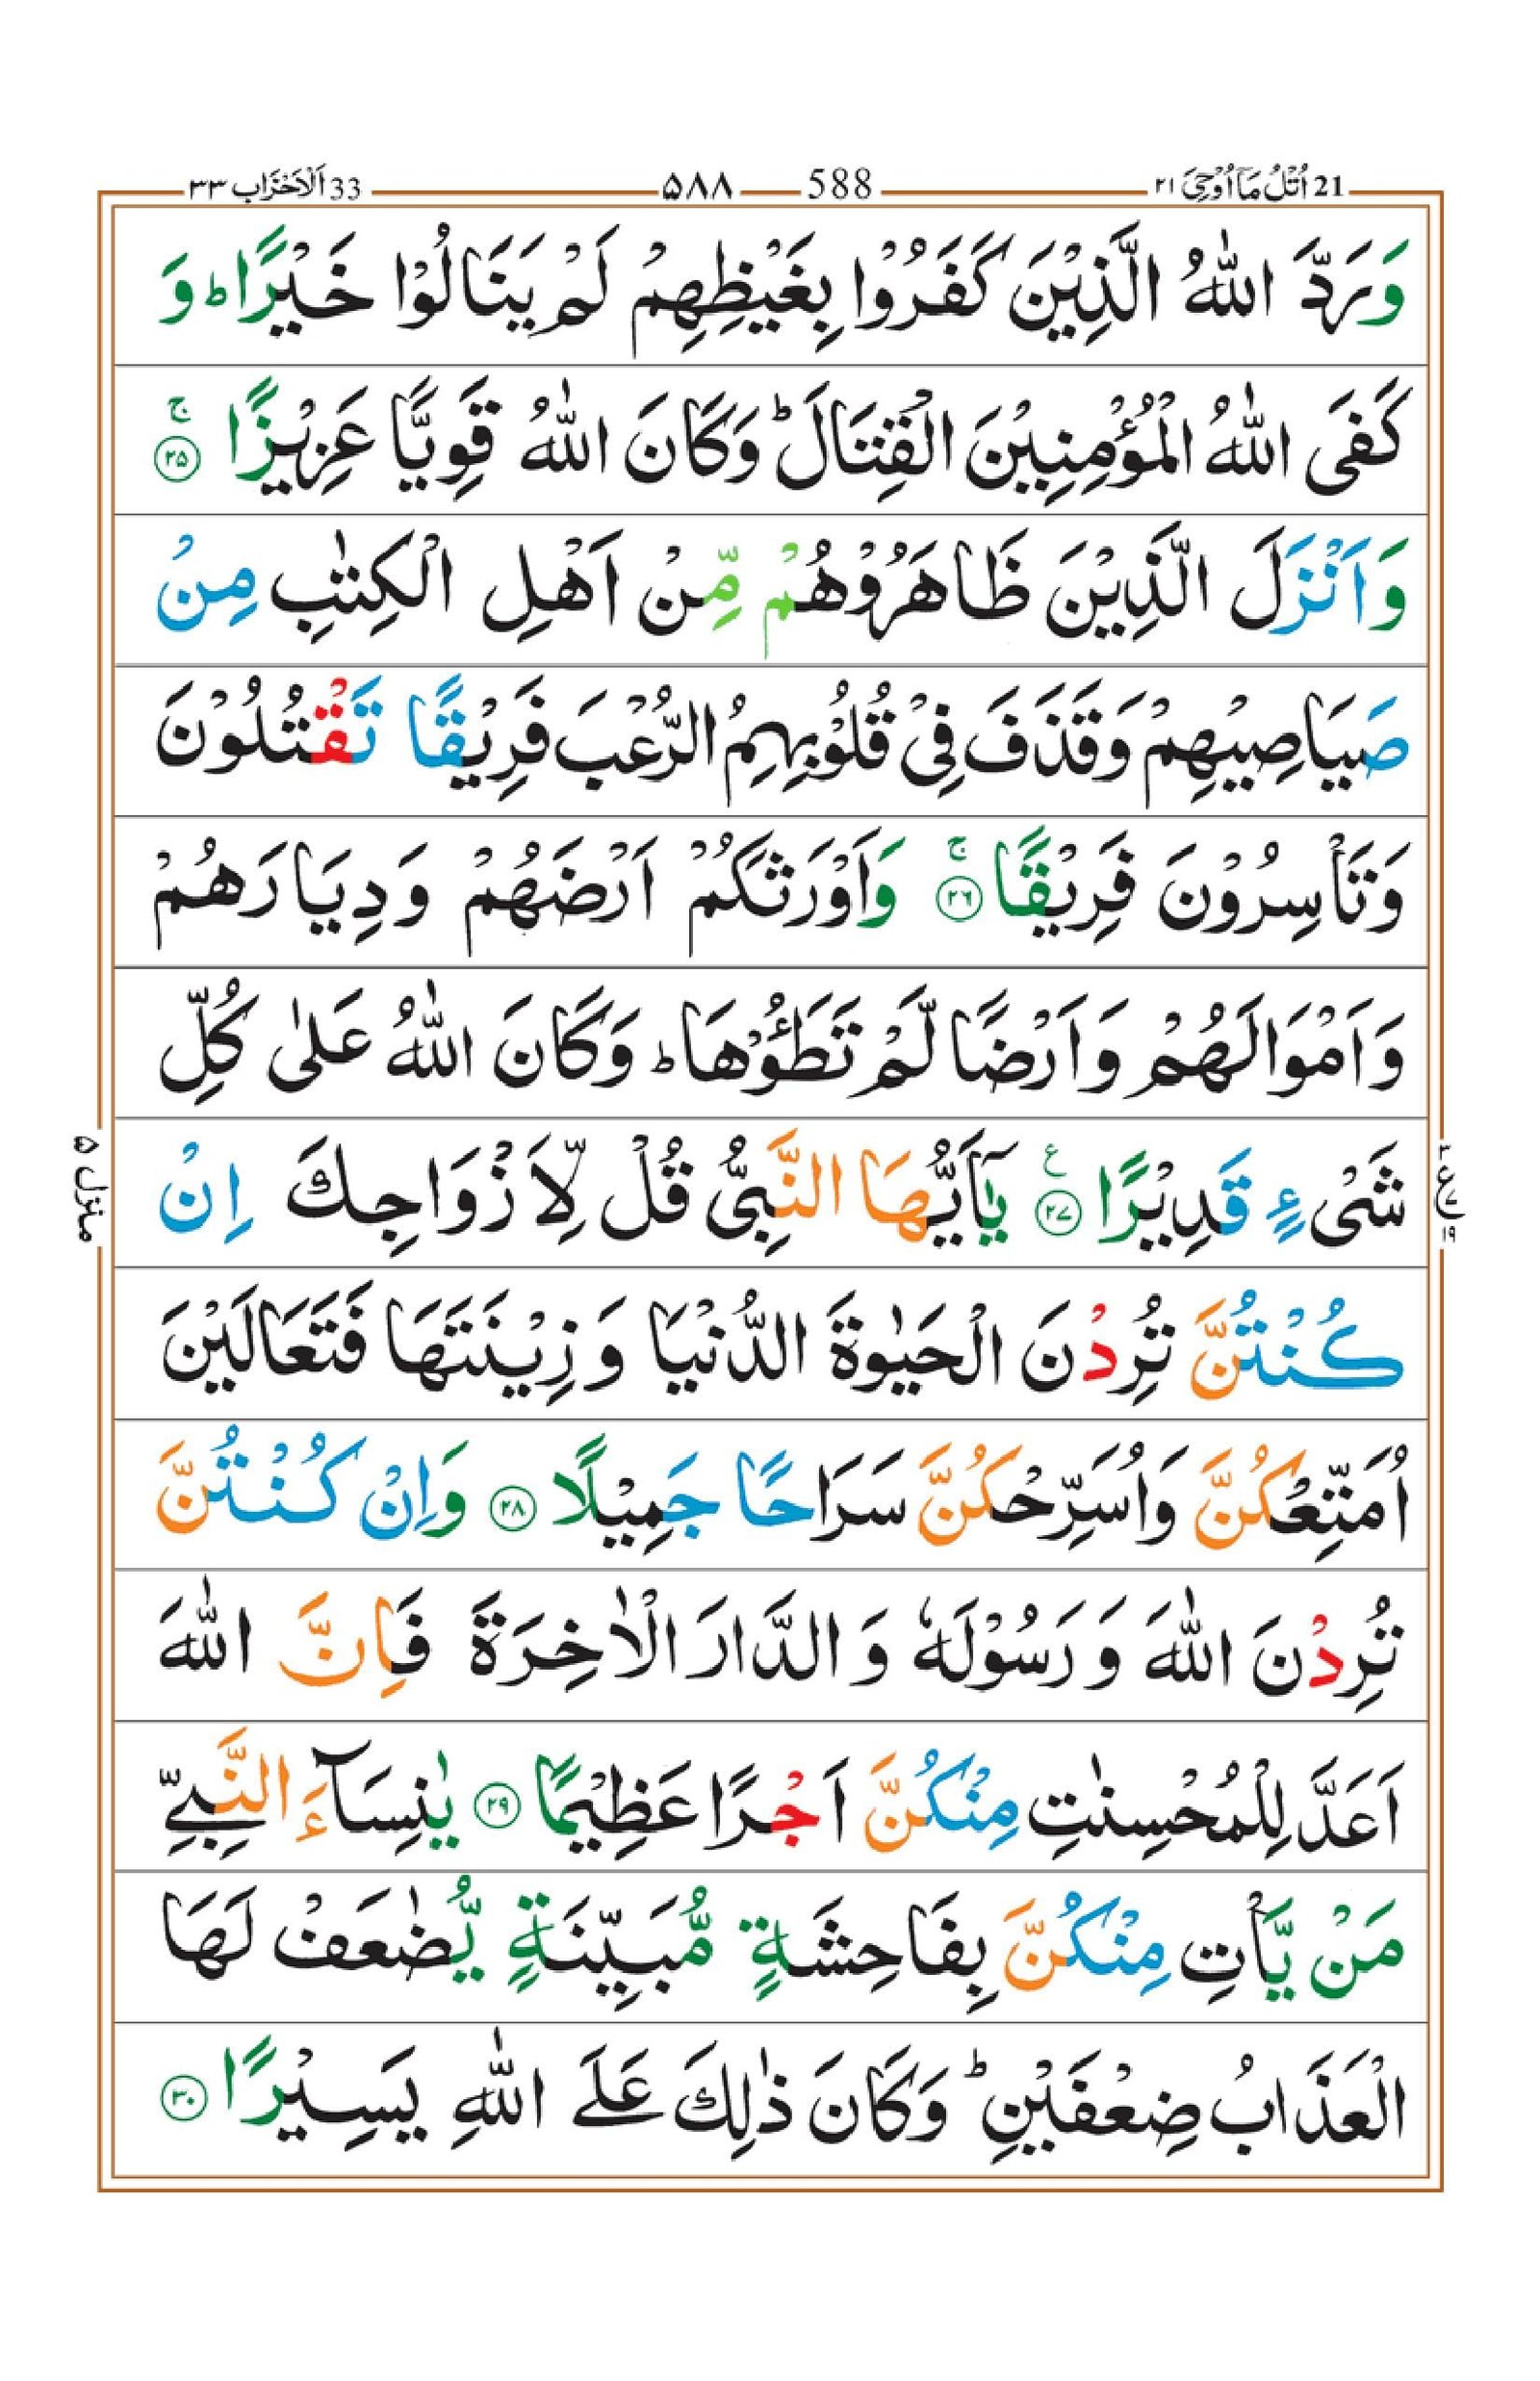 21 اُتْلُ مَآ اُوْحِیَ ۲۱ 588 ۵۸۸ 33 اَلْاَحْزَاب ۳۳
وَرَدَّ اللّٰهُ الَّذِيْنَ كَفَرُوْا بِغَيْظِهِمْ لَمْ يَنَالُوْا خَيْرًاؕ وَ
كَفَى اللّٰهُ الْمُؤْمِنِيْنَ الْقِتَالَؕ وَكَانَ اللّٰهُ قَوِيًّا عَزِيْزًاۚ ۲۵
وَاَنْزَلَ الَّذِيْنَ ظَاهَرُوْهُمْ مِّنْ اَهْلِ الْكِتٰبِ مِنْ
صَيَاصِيْهِمْ وَقَذَفَ فِىْ قُلُوْبِهِمُ الرُّعْبَ فَرِيْقًا تَقْتُلُوْنَ
وَتَاْسِرُوْنَ فَرِيْقًاۚ ۲۶ وَاَوْرَثَكُمْ اَرْضَهُمْ وَدِيَارَهُمْ
وَاَمْوَالَهُمْ وَاَرْضًا لَّمْ تَطَـُٔوْهَاؕ وَكَانَ اللّٰهُ عَلٰى كُلِّ
شَىْءٍ قَدِيْرًا ۲۷ ع يٰۤاَيُّهَا النَّبِىُّ قُلْ لِّاَزْوَاجِكَ اِنْ
كُنْتُنَّ تُرِدْنَ الْحَيٰوةَ الدُّنْيَا وَزِيْنَتَهَا فَتَعَالَيْنَ
اُمَتِّعْكُنَّ وَاُسَرِّحْكُنَّ سَرَاحًا جَمِيْلًا ۲۸ وَاِنْ كُنْتُنَّ
تُرِدْنَ اللّٰهَ وَرَسُوْلَهٗ وَالدَّارَ الْاٰخِرَةَ فَاِنَّ اللّٰهَ
اَعَدَّ لِلْمُحْسِنٰتِ مِنْكُنَّ اَجْرًا عَظِيْمًا ۲۹ يٰنِسَآءَ النَّبِىِّ
مَنْ يَّاْتِ مِنْكُنَّ بِفَاحِشَةٍ مُّبَيِّنَةٍ يُّضٰعَفْ لَهَا
الْعَذَابُ ضِعْفَيْنِؕ وَكَانَ ذٰلِكَ عَلَى اللّٰهِ يَسِيْرًا ۳۰
منزل ۵
ع ۱۹